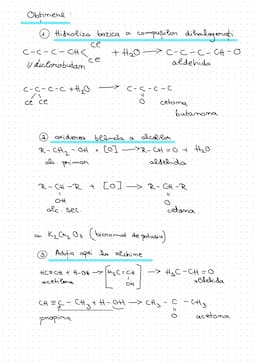 Obținere:
① Hidroliza bazica a compusilor dihalogenati
C-C-C-CH< ce ce + H₂O → C-C-C-CH=O
1,1 diclorobutan aldehida
C-C-C-C + H₂O → C-C-C-C
ce ce O cetona
butanona
② oxidarea blândă a alcolilor
R-CH₂-OH + [O] → R-CH=O + H₂O
alc primar aldehida
R-CH-R + [O] → R-C-R
OH O
alc. sec. cetona
cu K₂Cr₂O₇ (bicromat de potasiu)
③ Aditia apei la alchine
HC≡CH + H-OH → [H₂C=CH OH] → H₃C-CH=O
acetilena aldehida
CH≡C-CH₃ + H-OH → CH₃-C-CH₃
propina O acetona